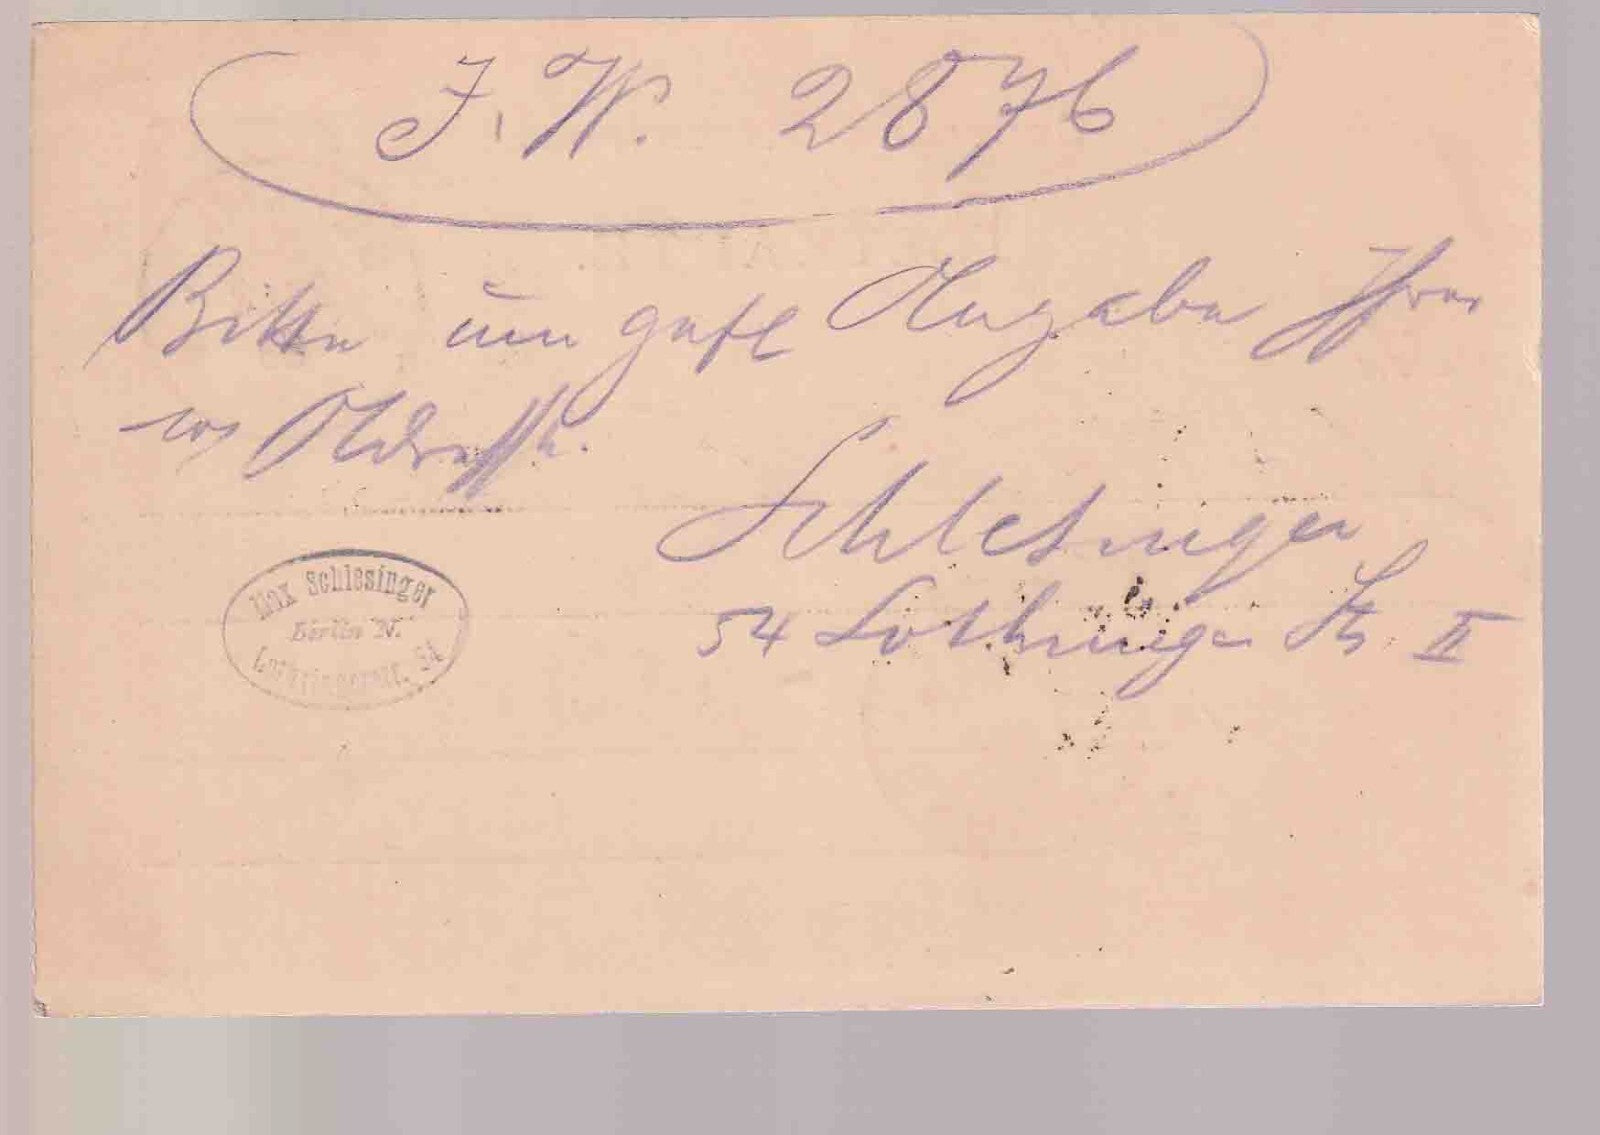 J. W. 2876
Bitte um gefl Angabe Ihrer
w Adresse.
Schlesinger
54 Lothringer Str II
Max Schlesinger
Berlin N.
Lothringerstr. 54